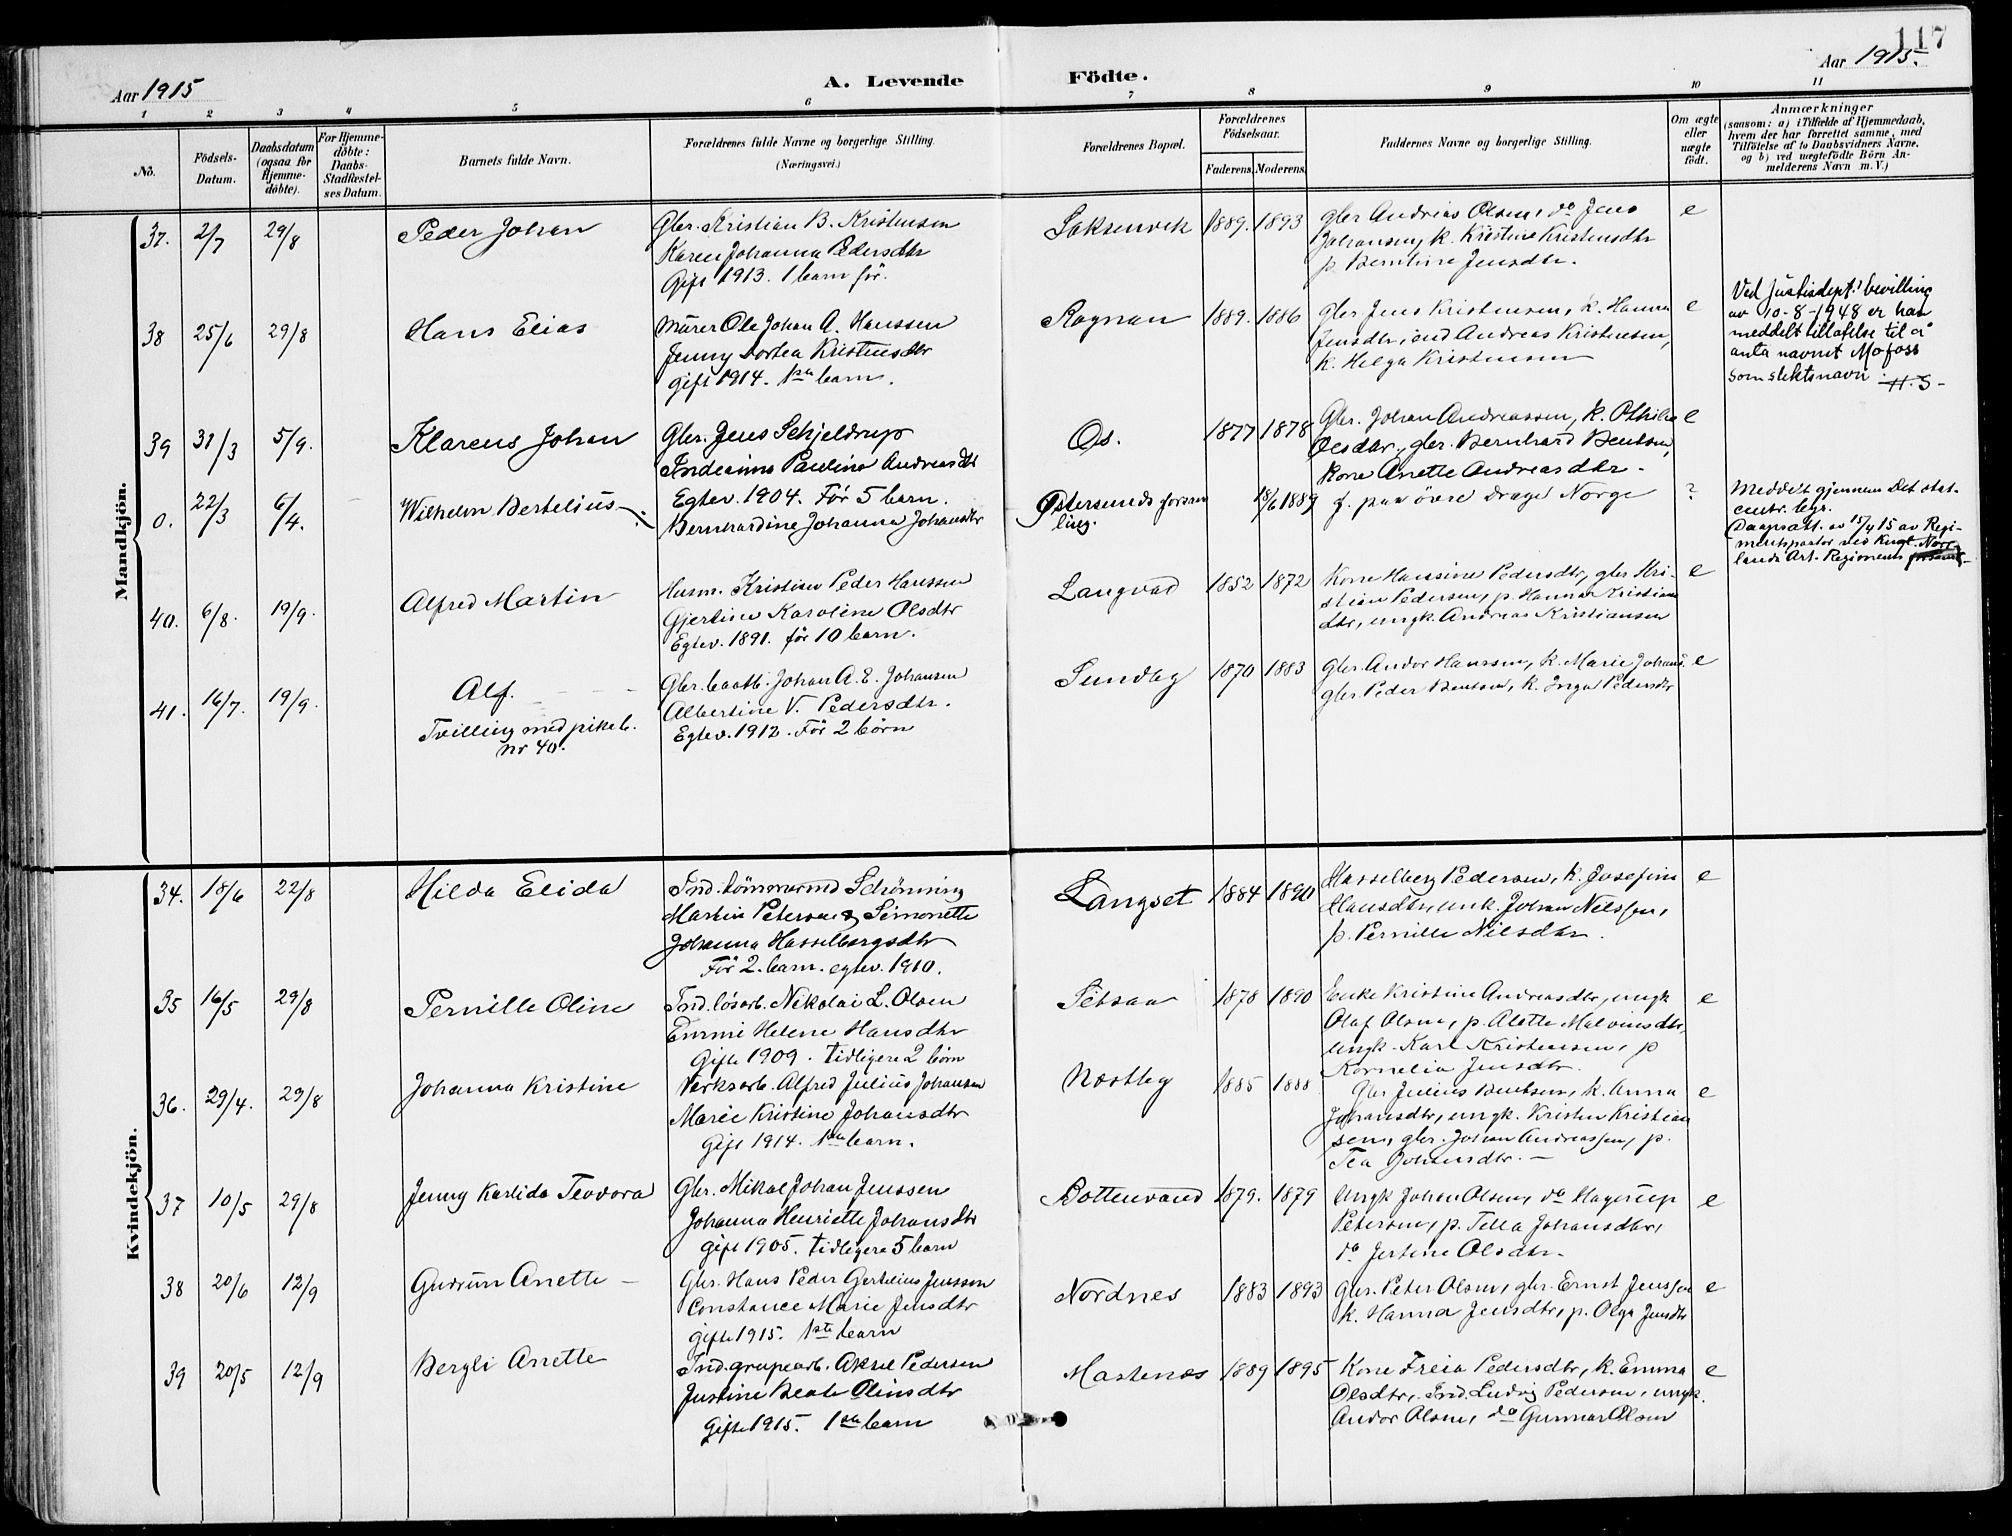 117
Aar 1915
A. Levende Födte.
Aar 1915.
1 2 3 4 5 6 7 8 9 10 11
No.
Födsels-Datum.
Daabsdatum (ogsaa for Hjemmedöbte).
For Hjemmedöbte: Daabs-Stadfæstelses Datum.
Barnets fulde Navn.
Forældrenes fulde Navne og borgerlige Stilling.
(Næringsvei.)
Forældrenes Bopæl.
Forældrenes Födselsaar.
Faderens. Moderens.
Faddernes Navne og borgerlige Stilling.
Om ægte eller uægte födt.
Anmærkninger
(saasom: a) i Tilfælde af Hjemmedaab,
hvem der har forrettet samme, med
Tilföielse af to Daabsvidners Navne.
og b) ved uægtefödte Börn Anmelderens Navn m.V.)
Mandkjön.
37. 2/7 29/8 Peder Johan
Gbr. Kristian B. Kristensen
Karen Johanna Pedersdtr
Gift 1913. 1 barn för.
Saksenvik 1889. 1893
gbr Andreas Olsen, do Jens
Johansen, k. Kristine Kristensdtr
p. Berntine Jensdtr.
e
38 25/6 29/8 Hans Elias
Murer Ole Johan A. Hanssen
Jenny Dortea Kristensdtr
gift 1914. 1ste barn.
Rognan 1889. 1886
gbr Jens Kristensen, k. Hanna
Jensdtr, ind Andreas Kristensen,
k. Helga Kristensen
e
Ved Justisdept.' bevilling
av 10-8-1948 er han
meddelt tillatelse til å
anta navnet Mofoss
som slektsnavn. H.S-
39 31/3 5/9. Klarens Johan
Gbr. Jens Schjeldrup
Indianna Pauline Andreasdtr
Egtev. 1904. För 5 barn.
Os. 1877 1878
Gbr. Johan Andreassen, k. Othilie
Olsdtr, gbr. Bernhard Bentsen,
Kone Anette Andreasdtr.
e
0. 22/3 6/4. Wilhelm Bertelius
Bernhardine Johanna Johansdtr
Östersunds forsamling.
18/6 1889
f. paa övre Drage Norge
?
Meddelt gjennem Det stat.
centr. byr.
Daapsatt. av 15/4 15 av Regimentspastor ved Kungl. Norrlands Art. Regionens forsaml.
40. 6/8. 19/9. Alfred Martin
Husm. Kristian Peder Hanssen
Gjertine Karoline Olsdtr
Egtev. 1891. för 10 barn.
Langvad 1852 1872
Kone Hansine Pedersdtr, gbr Kristian Pedersen, p. Hanna Kristiansdtr, ungk. Andreas Kristiansen
e
41. 16/7. 19/9. Alf.
Tvilling med pikeb.
nr 40.
Gbr. baatb. Johan A. E. Johansen
Albertine V. Pedersdtr.
Egtev. 1912. För 2 börn
Sundby 1870 1883
Gbr. Andor Hanssen, k. Marie Johans.
gbr. Peder Bentsen, k. Inga Pedersdtr
e
Kvindekjön.
34. 18/6 22/8 Hilda Elida
Ind. tömmermd Schönning
Martin Petersen & Simonette
Johanna Hasselbergsdtr
För 2 barn. egtev. 1910.
Langset 1884 1890
Hasselberg Pedersen, k. Josefine
Hansdtr, unk. Johan Nilssen,
p. Pernille Nilsdtr.
e
35 16/5 29/8 Pernille Oline
Ind. lösarb. Nikolai L. Olsen
Emmi Helene Hansdtr
Gifte 1909. tidligere 2 börn
Setsaa 1878 1890
Enke Kristine Andreasdtr, ungk
Olaf Olsen, p. Alette Malvinsdtr,
ungk. Karl Kristensen, p
Kornelia Jensdtr.
e
36. 29/4. 29/8 Johanna Kristine
Verksarb. Alfred Julius Johansen
Marie Kristine Johansdtr
Gift 1914. 1ste barn.
Næstby 1885 1888
Gbr Julius Bentsen, k. Anna
Johansdtr, ungk. Kristen Kristiansen, gbr. Johan Andreassen, p.
Tea Johansdtr.
e
37 10/5 29/8 Jenny Karlida Teodora
Gbr. Mikal Johan Jenssen
Johanna Henriette Johansdtr
gift 1905. tidligere 5 barn
Bottenvand 1879. 1879
Ungk Johan Olsen, do Hagerup
Petersen, p. Tella Johansdtr,
do Jertine Olsdtr.
e
38 20/6 12/9 Gudrun Anette
Gbr. Hans Peder Gertelius Jenssen
Constance Marie Jensdtr
gifte 1915. 1ste barn
Nordnes 1883 1893
Gbr. Peter Olsen, gbr. Ernst Jenssen
k. Hanna Jensdtr, p. Olga Jensdtr
e
39 20/5 12/9 Bergli Anette
Ind. grupearb. Aksel Pedersen
Justine Beate Olinsdtr
Gifte 1915. 1ste barn
Mastenes 1889 1895
Kone Freia Pedersdtr, k. Emma
Olsdtr, Ind. Ludvig Pedersen, ungk.
Andor Olsen, do Gunnar Olsen
e